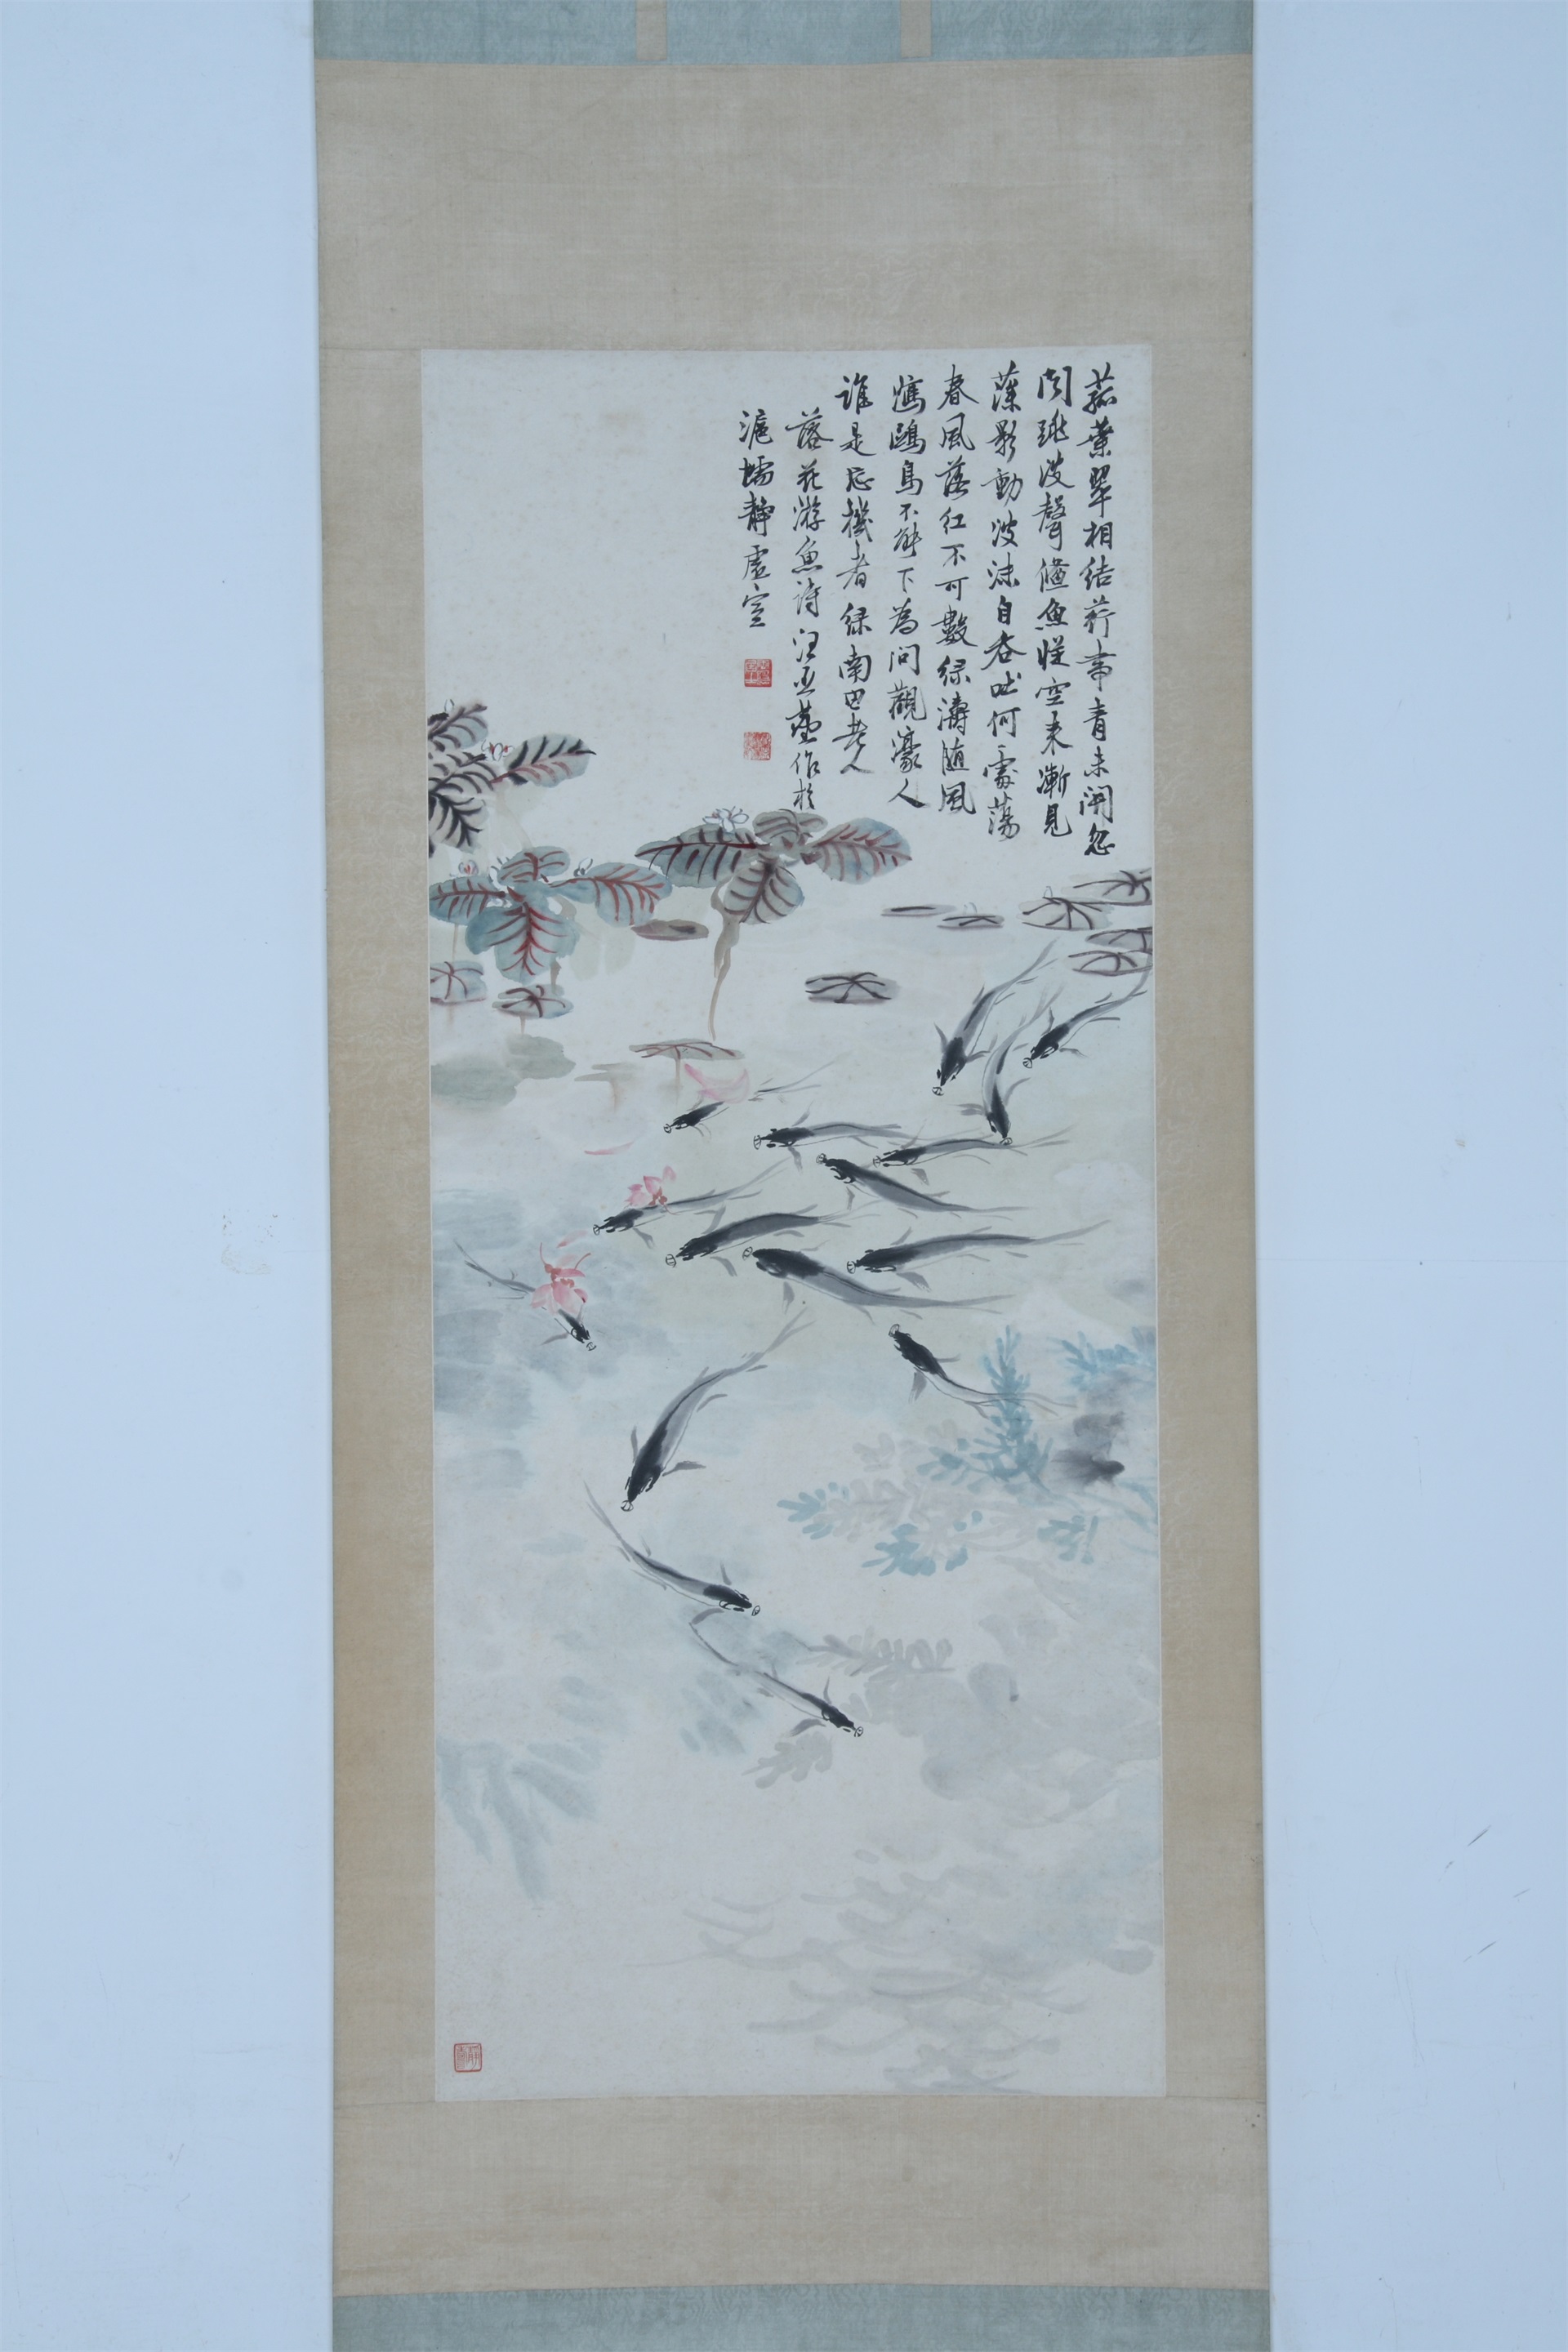 菰葉翠相結荇帶青未開忽
聞跳波聲鯈魚從空來漸見
藻影動波沫自吞吐何處蕩
春風落紅不可數綠濤随風
鴻鷗鳥不能下為问觀濠人
誰是忘機者 録南田老人
落花游魚詩 汪亞塵作於
滬壖静虚室